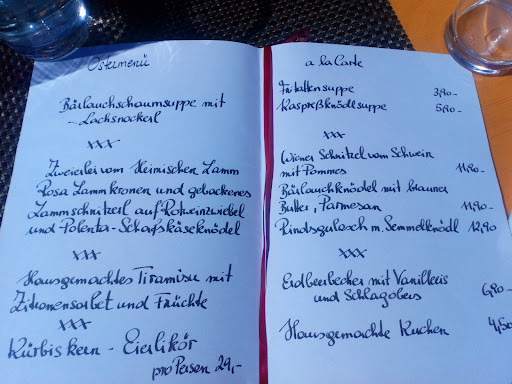 Ostermenü
Bärlauchschaumsuppe mit
- Lachsnockerl
xxx
Zweierlei vom Heimischen Lamm
Rosa Lammkronen und gebackenes
Lammschnitzerl auf Rotweinzwiebel
und Polenta-Schafskäseknödel
xxx
Hausgemachtes Tiramisu mit
Zitronensorbet und Früchte
xxx
Kürbiskern - Eierlikör
pro Person 29,-
a la Carte
Frittattensuppe 3,90-
Kaspreßknödlsuppe 5,90-
xxx
Wiener Schnitzel vom Schwein
mit Pommes 11,90-
Bärlauchknödel mit brauner
Butter, Parmesan 11,90-
Rindsgulasch m. Semmelknödl 12,90
xxx
Erdbeerbecher mit Vanilleeis
und Schlagobers 6,90-
Hausgemachte Kuchen 4,50